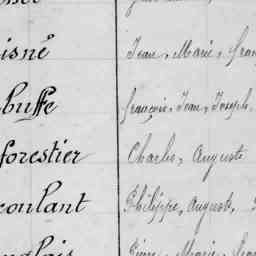 isné Jean, Marie, fran
buffe françois, Jean, Joseph,
forestier Charles, Auguste
coulant Philippe, August,
anglais Pierre, Marie, fran